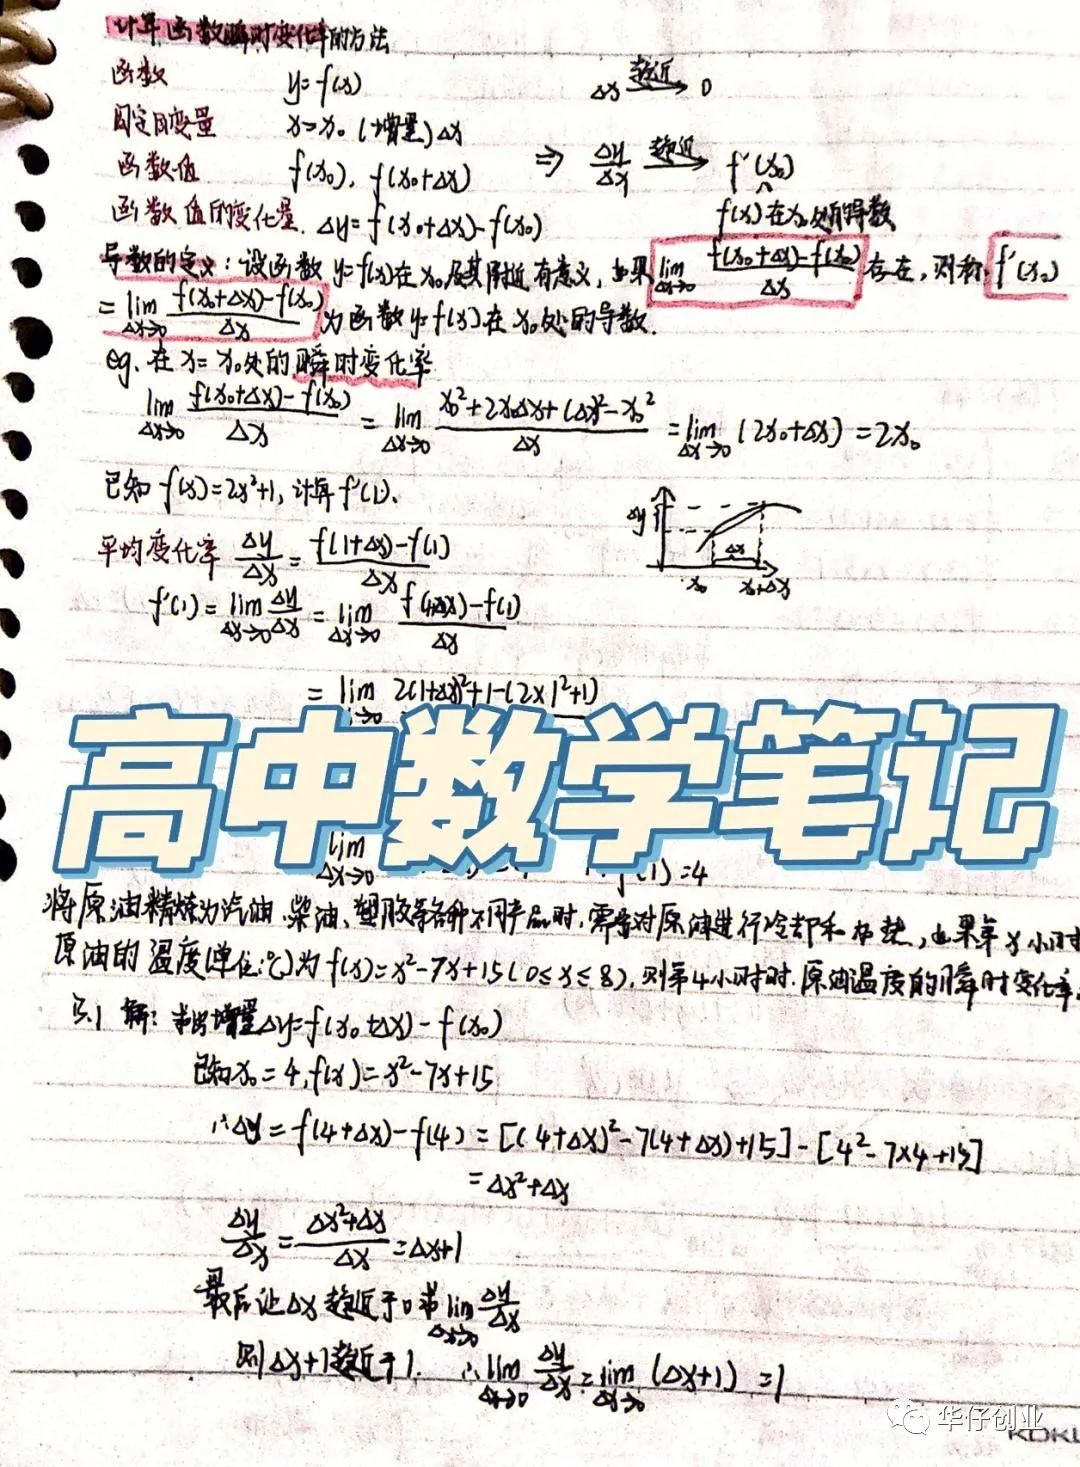 计算函数瞬时变化率的方法
函数 y=f(x) Δx 趋近→ 0
固定自变量 x=x₀ (+增量)Δx
函数值 f(x₀), f(x₀+Δx) ⇒ Δy/Δx 趋近→ f'(x₀)
函数值的变化量. Δy=f(x₀+Δx)-f(x₀) f(x)在x₀处的导数
导数的定义:设函数y=f(x)在x₀及其附近有意义,如果 lim Δx→0 (f(x₀+Δx)-f(x₀))/Δx 存在,则称 f'(x₀)
= lim Δx→0 (f(x₀+Δx)-f(x₀))/Δx 为函数y=f(x)在x₀处的导数.
eg. 在x=x₀处的瞬时变化率
lim Δx→0 (f(x₀+Δx)-f(x₀))/Δx = lim Δx→0 (x₀²+2x₀Δx+(Δx)²-x₀²)/Δx = lim Δx→0 (2x₀+Δx) = 2x₀
已知f(x)=2x²+1,计算f'(1).
Δy Δx x₀ x₀+Δx
平均变化率 Δy/Δx = (f(1+Δx)-f(1))/Δx
f'(1) = lim Δx→0 Δy/Δx = lim Δx→0 (f(1+Δx)-f(1))/Δx
= lim 2(1+Δx)²+1-(2×1²+1)
高中数学笔记
lim Δx→0 (1)=4
将原油精炼为汽油、柴油、塑胶等各种不同产品时,需要对原油进行冷却和加热,如果第x小时
原油的温度(单位:℃)为f(x)=x²-7x+15(0≤x≤8),则第4小时时.原油温度的瞬时变化率
解:求出增量Δy=f(x₀+Δx)-f(x₀)
已知x₀=4,f(x)=x²-7x+15
∴Δy=f(4+Δx)-f(4)=[(4+Δx)²-7(4+Δx)+15]-[4²-7×4+15]
=Δx²+Δx
Δy/Δx = (Δx²+Δx)/Δx = Δx+1
最后让Δx趋近于0求 lim Δx→0 Δy/Δx
则Δx+1趋近于1. ∴ lim Δx→0 Δy/Δx = lim Δx→0 (Δx+1) =1
华仔创业
KOKU